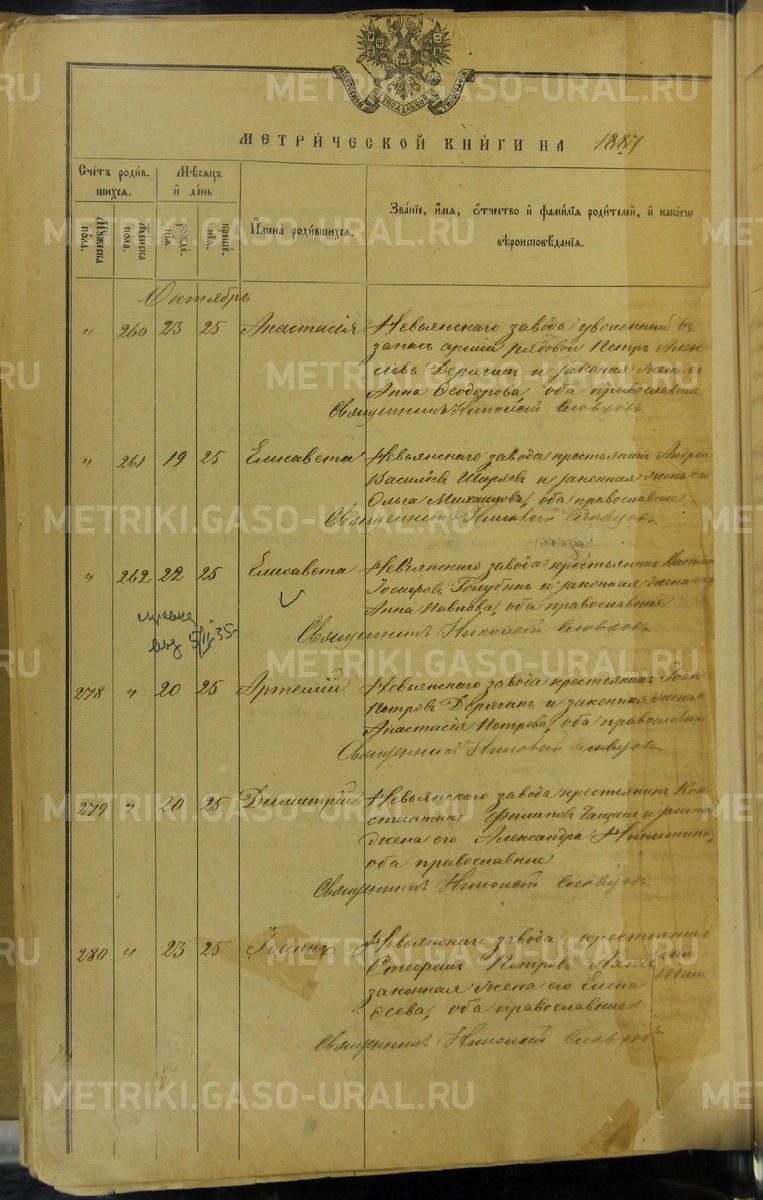 МЕТРИ́ЧЕСКОЙ КНИ́ГИ НА 1887
Счётъ роди́в-
шихся.
Му́жеска
по́ла.
Же́нска
по́ла.
Мѣ́сяцъ
и̂ де́нь
рожде́-
нїѧ.
креще́-
нїѧ.
И̂мена̀ роди́вшихсѧ.
Зва́нїе, и҆́мѧ, ѻ҆́тчество и҆ фами́лїѧ роди́телей, и҆ како́гѡ
вѣроисповѣ́данїѧ.
Октябрь
" 260 23 25 Анастасія Невьянскаго завода уволенный въ
запасъ арміи рядовой Петръ Алек-
сіевъ Дерягинъ и законная жена
Анна Ѳеодорова, оба православные
Священникъ Николай Словцовъ.
" 261 19 25 Елисавета Невьянскаго завода крестьянинъ Андрей
Василіевъ Ширяевъ и законная жена его
Ольга Михаилова, оба православные
Священникъ Николай Словцовъ.
" 262 22 25 Елисавета Невьянскаго завода крестьянинъ
Іосифовъ Голубинъ и законная жена его
Анна Павлова, оба православные
Священникъ Николай Словцовъ.
справка
выд 5/II 35
278 " 20 25 Артемій Невьянскаго завода крестьянинъ
Петровъ Дерягинъ и законная жена
Анастасія Петрова, оба православные
Священникъ Николай Словцовъ
279 " 20 25 Димитрій Невьянскаго завода крестьянинъ Кон-
стантинъ Филиповъ и законная
жена его Александра Никитина,
оба православные
Священникъ Николай Словцовъ.
280 " 23 25 Іоаннъ Невьянскаго завода крестьянинъ
Стефанъ Петровъ
законная жена его Елена
оба православные
Священникъ Николай Словцовъ
METRIKI.GASO-URAL.RU